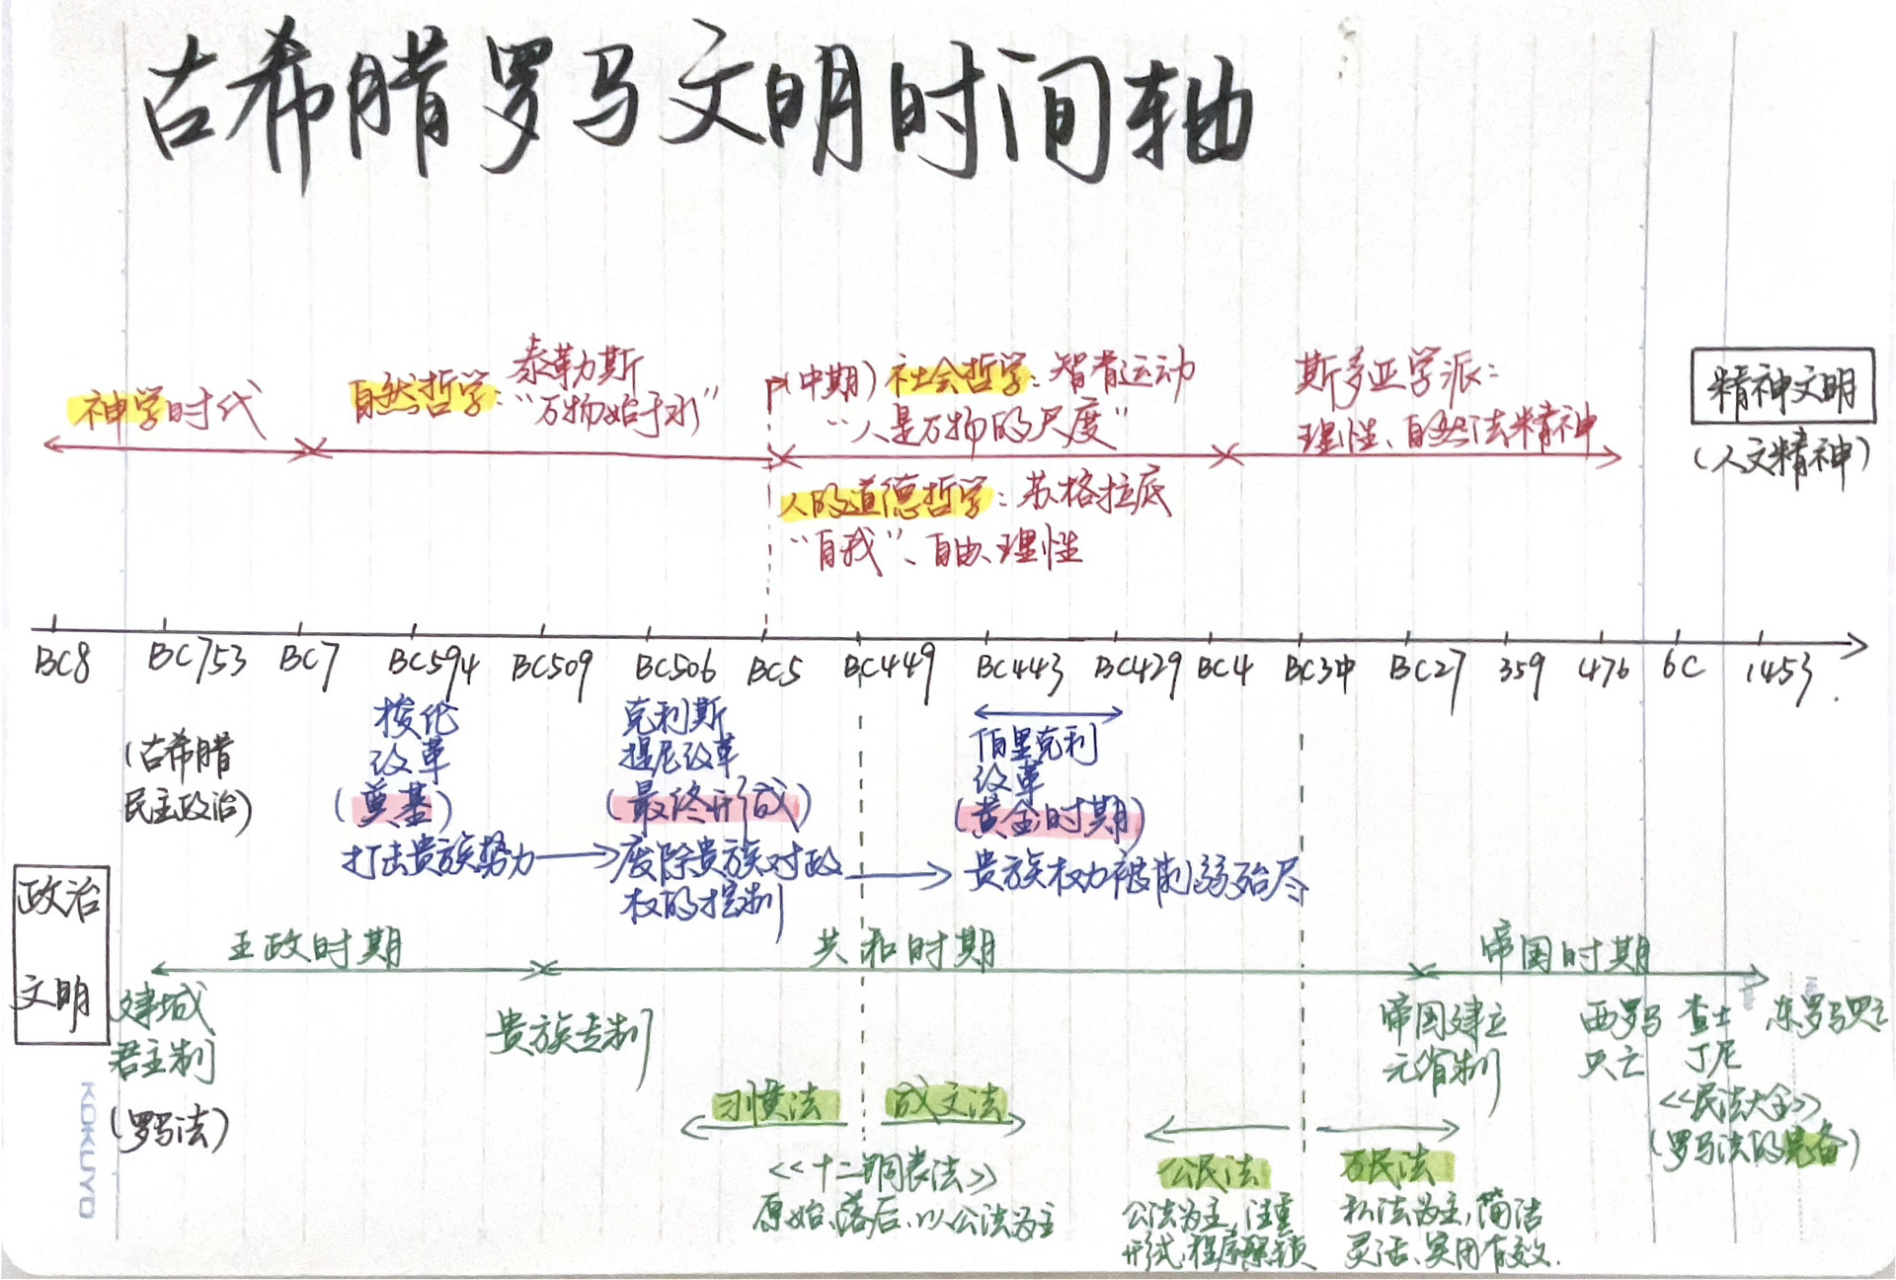 古希腊罗马文明时间轴
神学时代
自然哲学：泰勒斯
“万物始于水”
(中期) 社会哲学：智者运动
“人是万物的尺度”
斯多亚学派：
理性、自然法精神
精神文明
(人文精神)
人的道德哲学：苏格拉底
“自我”、自由、理性
BC8 BC753 BC7 BC594 BC509 BC506 BC5 BC449 BC443 BC429 BC4 BC3中 BC27 359 476 6C 1453
(古希腊
民主政治)
梭伦
改革
(奠基)
打击贵族势力
克利斯
提尼改革
(最终形成)
废除贵族对政
权的控制
伯里克利
改革
(黄金时期)
贵族权力被削弱殆尽
政治
文明
王政时期
共和时期
帝国时期
建城
君主制
(罗马法)
贵族专制
帝国建立
元首制
西罗马
灭亡
查士
丁尼
<<民法大全>>
(罗马法的完备)
东罗马灭亡
习惯法
成文法
<<十二铜表法>>
原始、落后、以公法为主
公民法
公法为主，注重
形式，程序繁琐
万民法
私法为主，简洁
灵活、实用有效.
KOKUYO